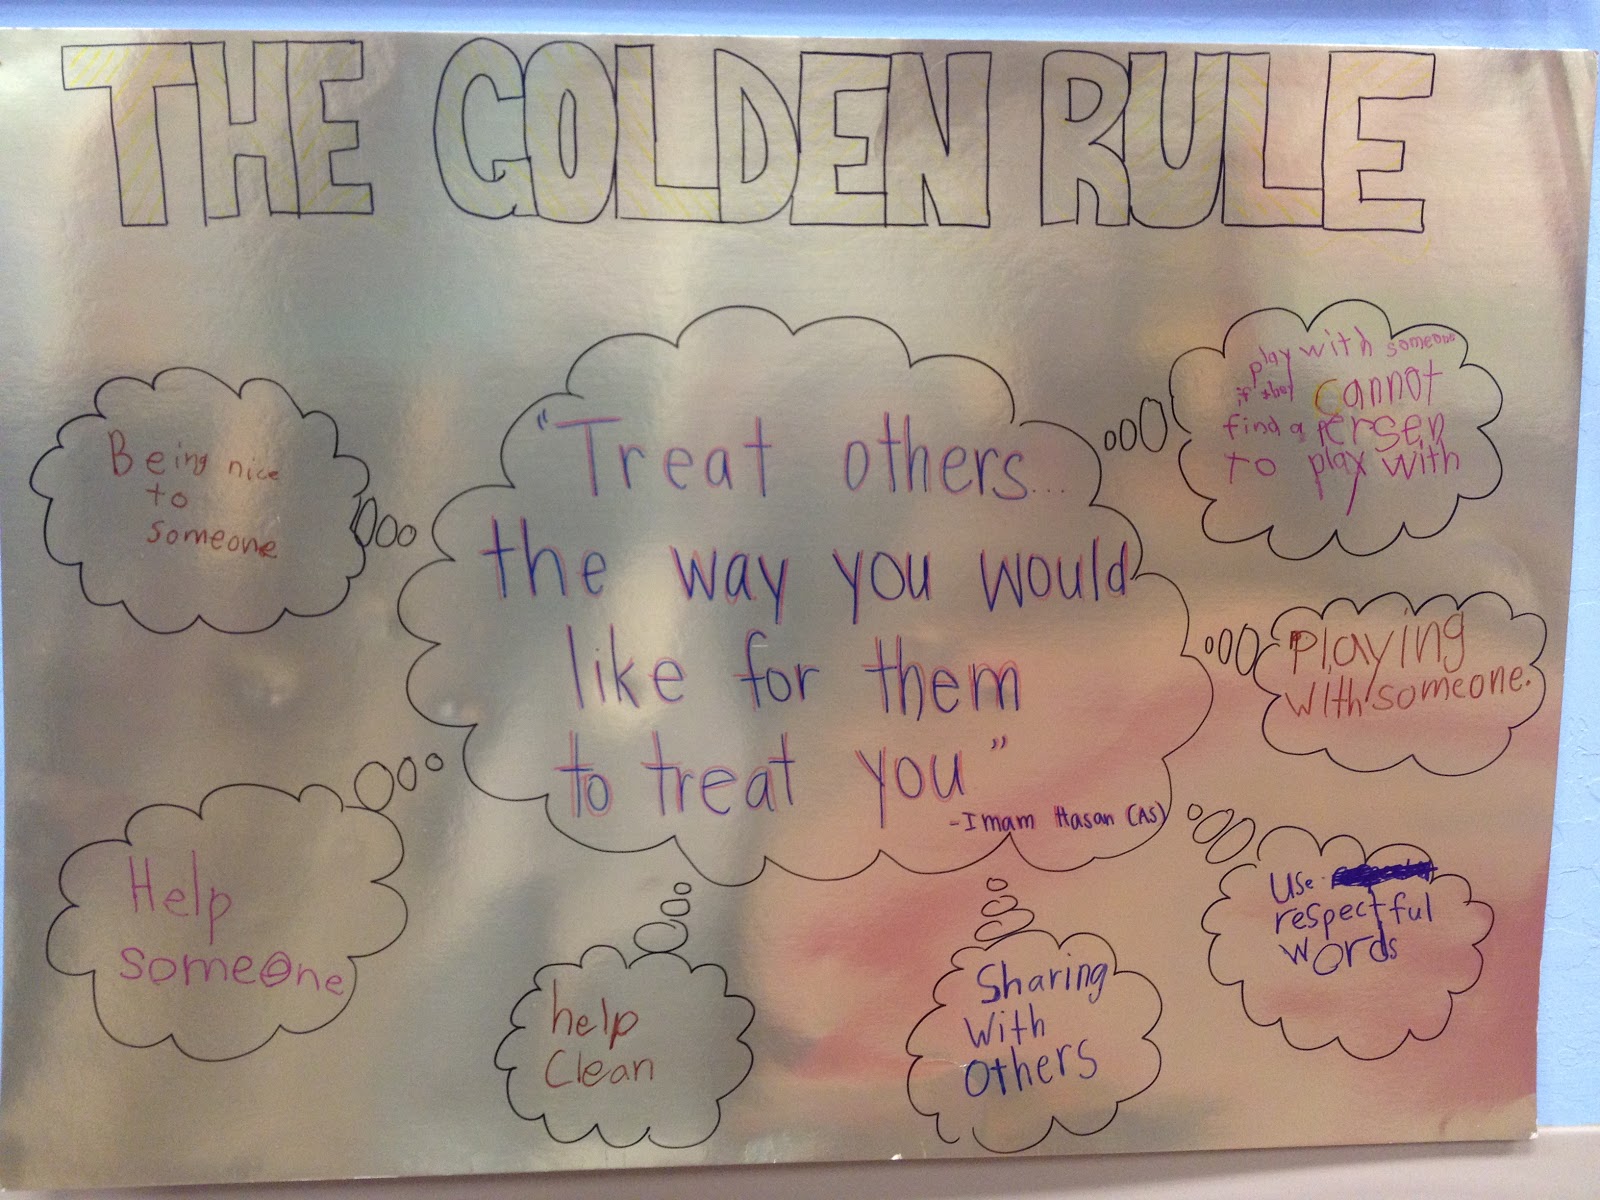 THE GOLDEN RULE
"Treat others...
the way you would
like for them
to treat you"
-Imam Hasan (AS)
Being nice
to
someone
Help
someone
help
Clean
Sharing
With
Others
Use
respectful
words
Playing
with someone.
play with someone
if they cannot
find a persen
to play with